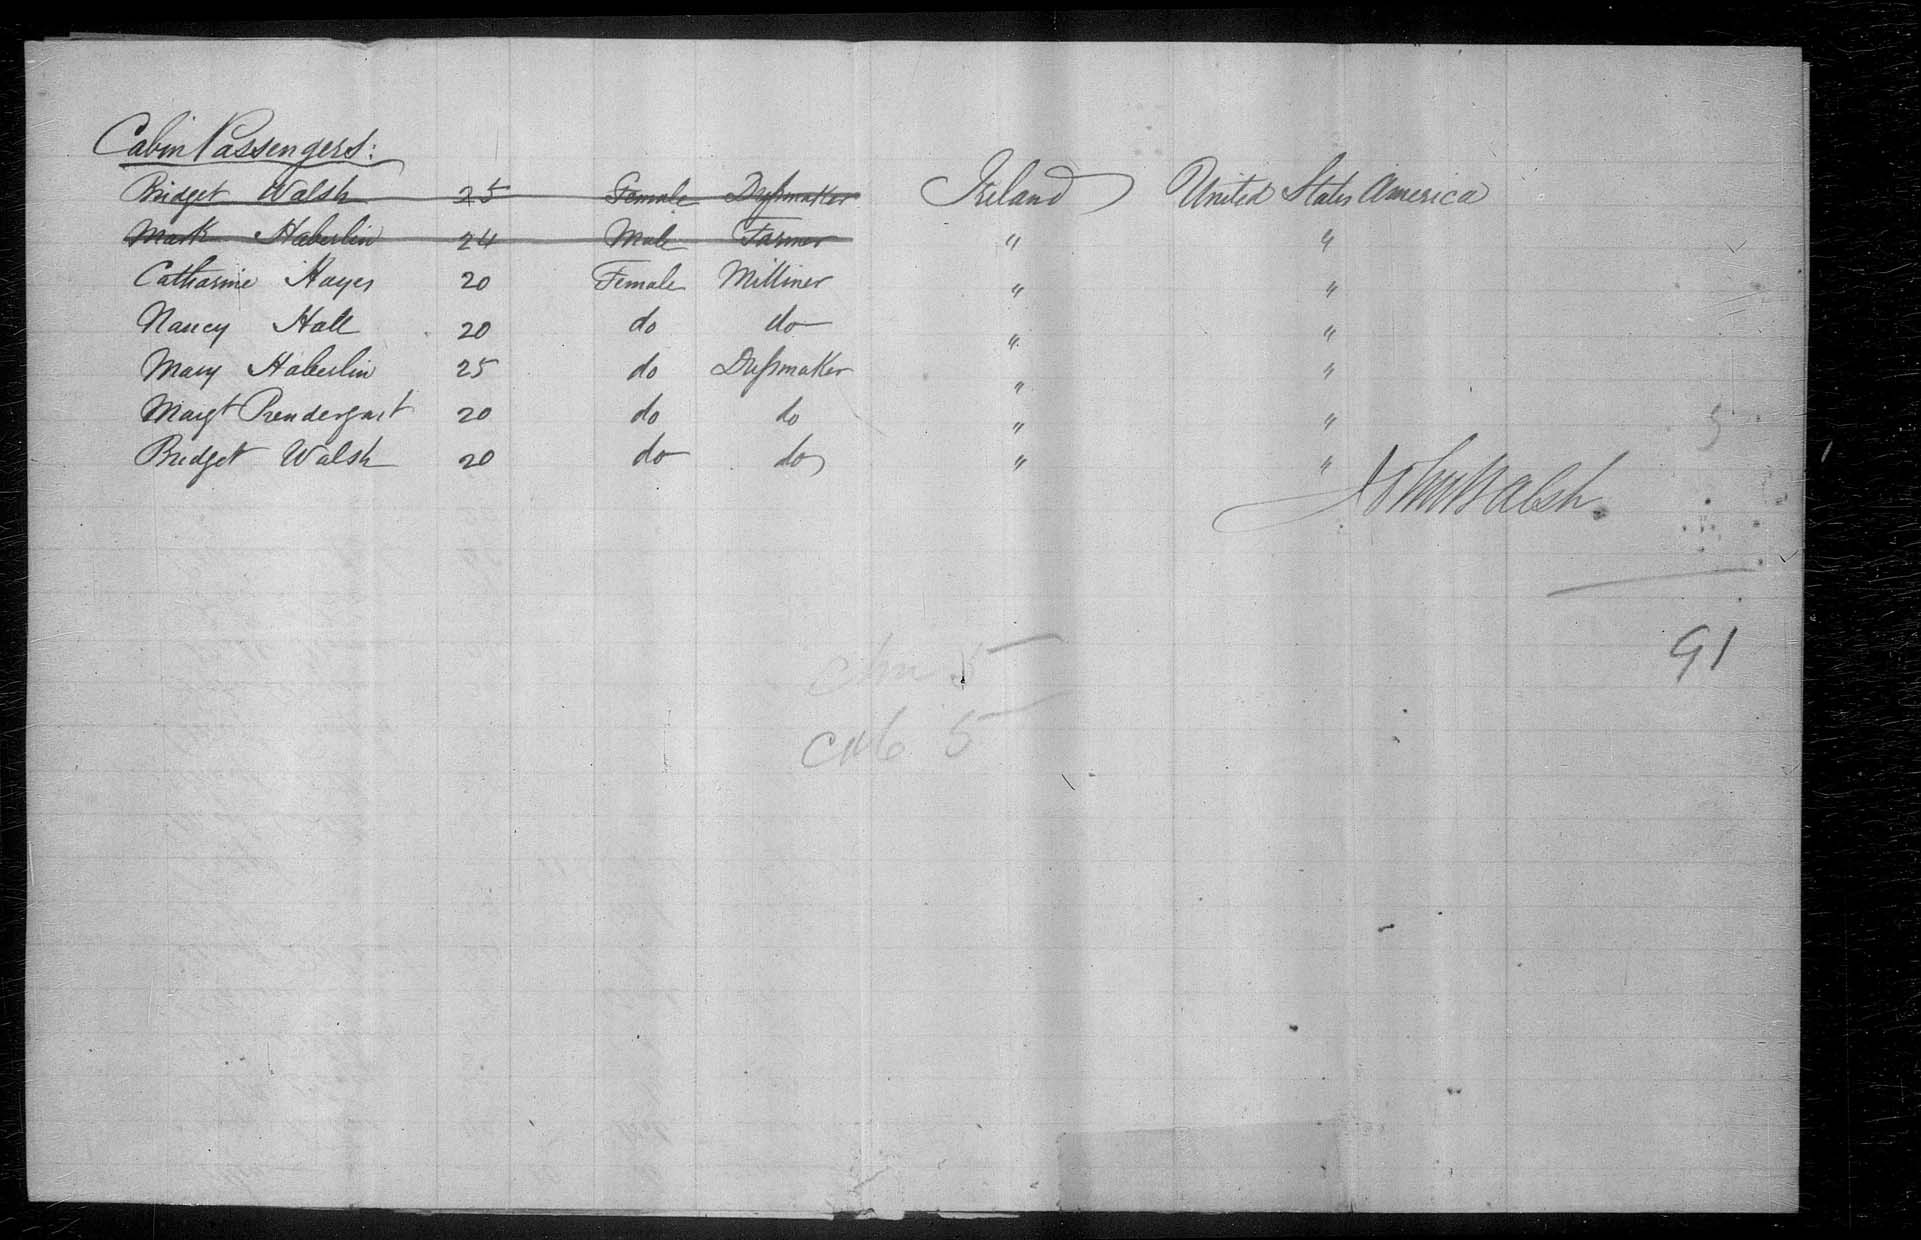 Cabin Passengers:
Bridget Walsh 25 Female Dressmaker Ireland United States America
Mark Haberlin 24 Male Farmer " "
Catharine Hayes 20 Female Milliner " "
Nancy Hall 20 do do " "
Mary Haberlin 25 do Dressmaker " "
Margt Prendergast 20 do do " "
Bridget Walsh 20 do do " "
John Walsh
91
chn 5
cab 5